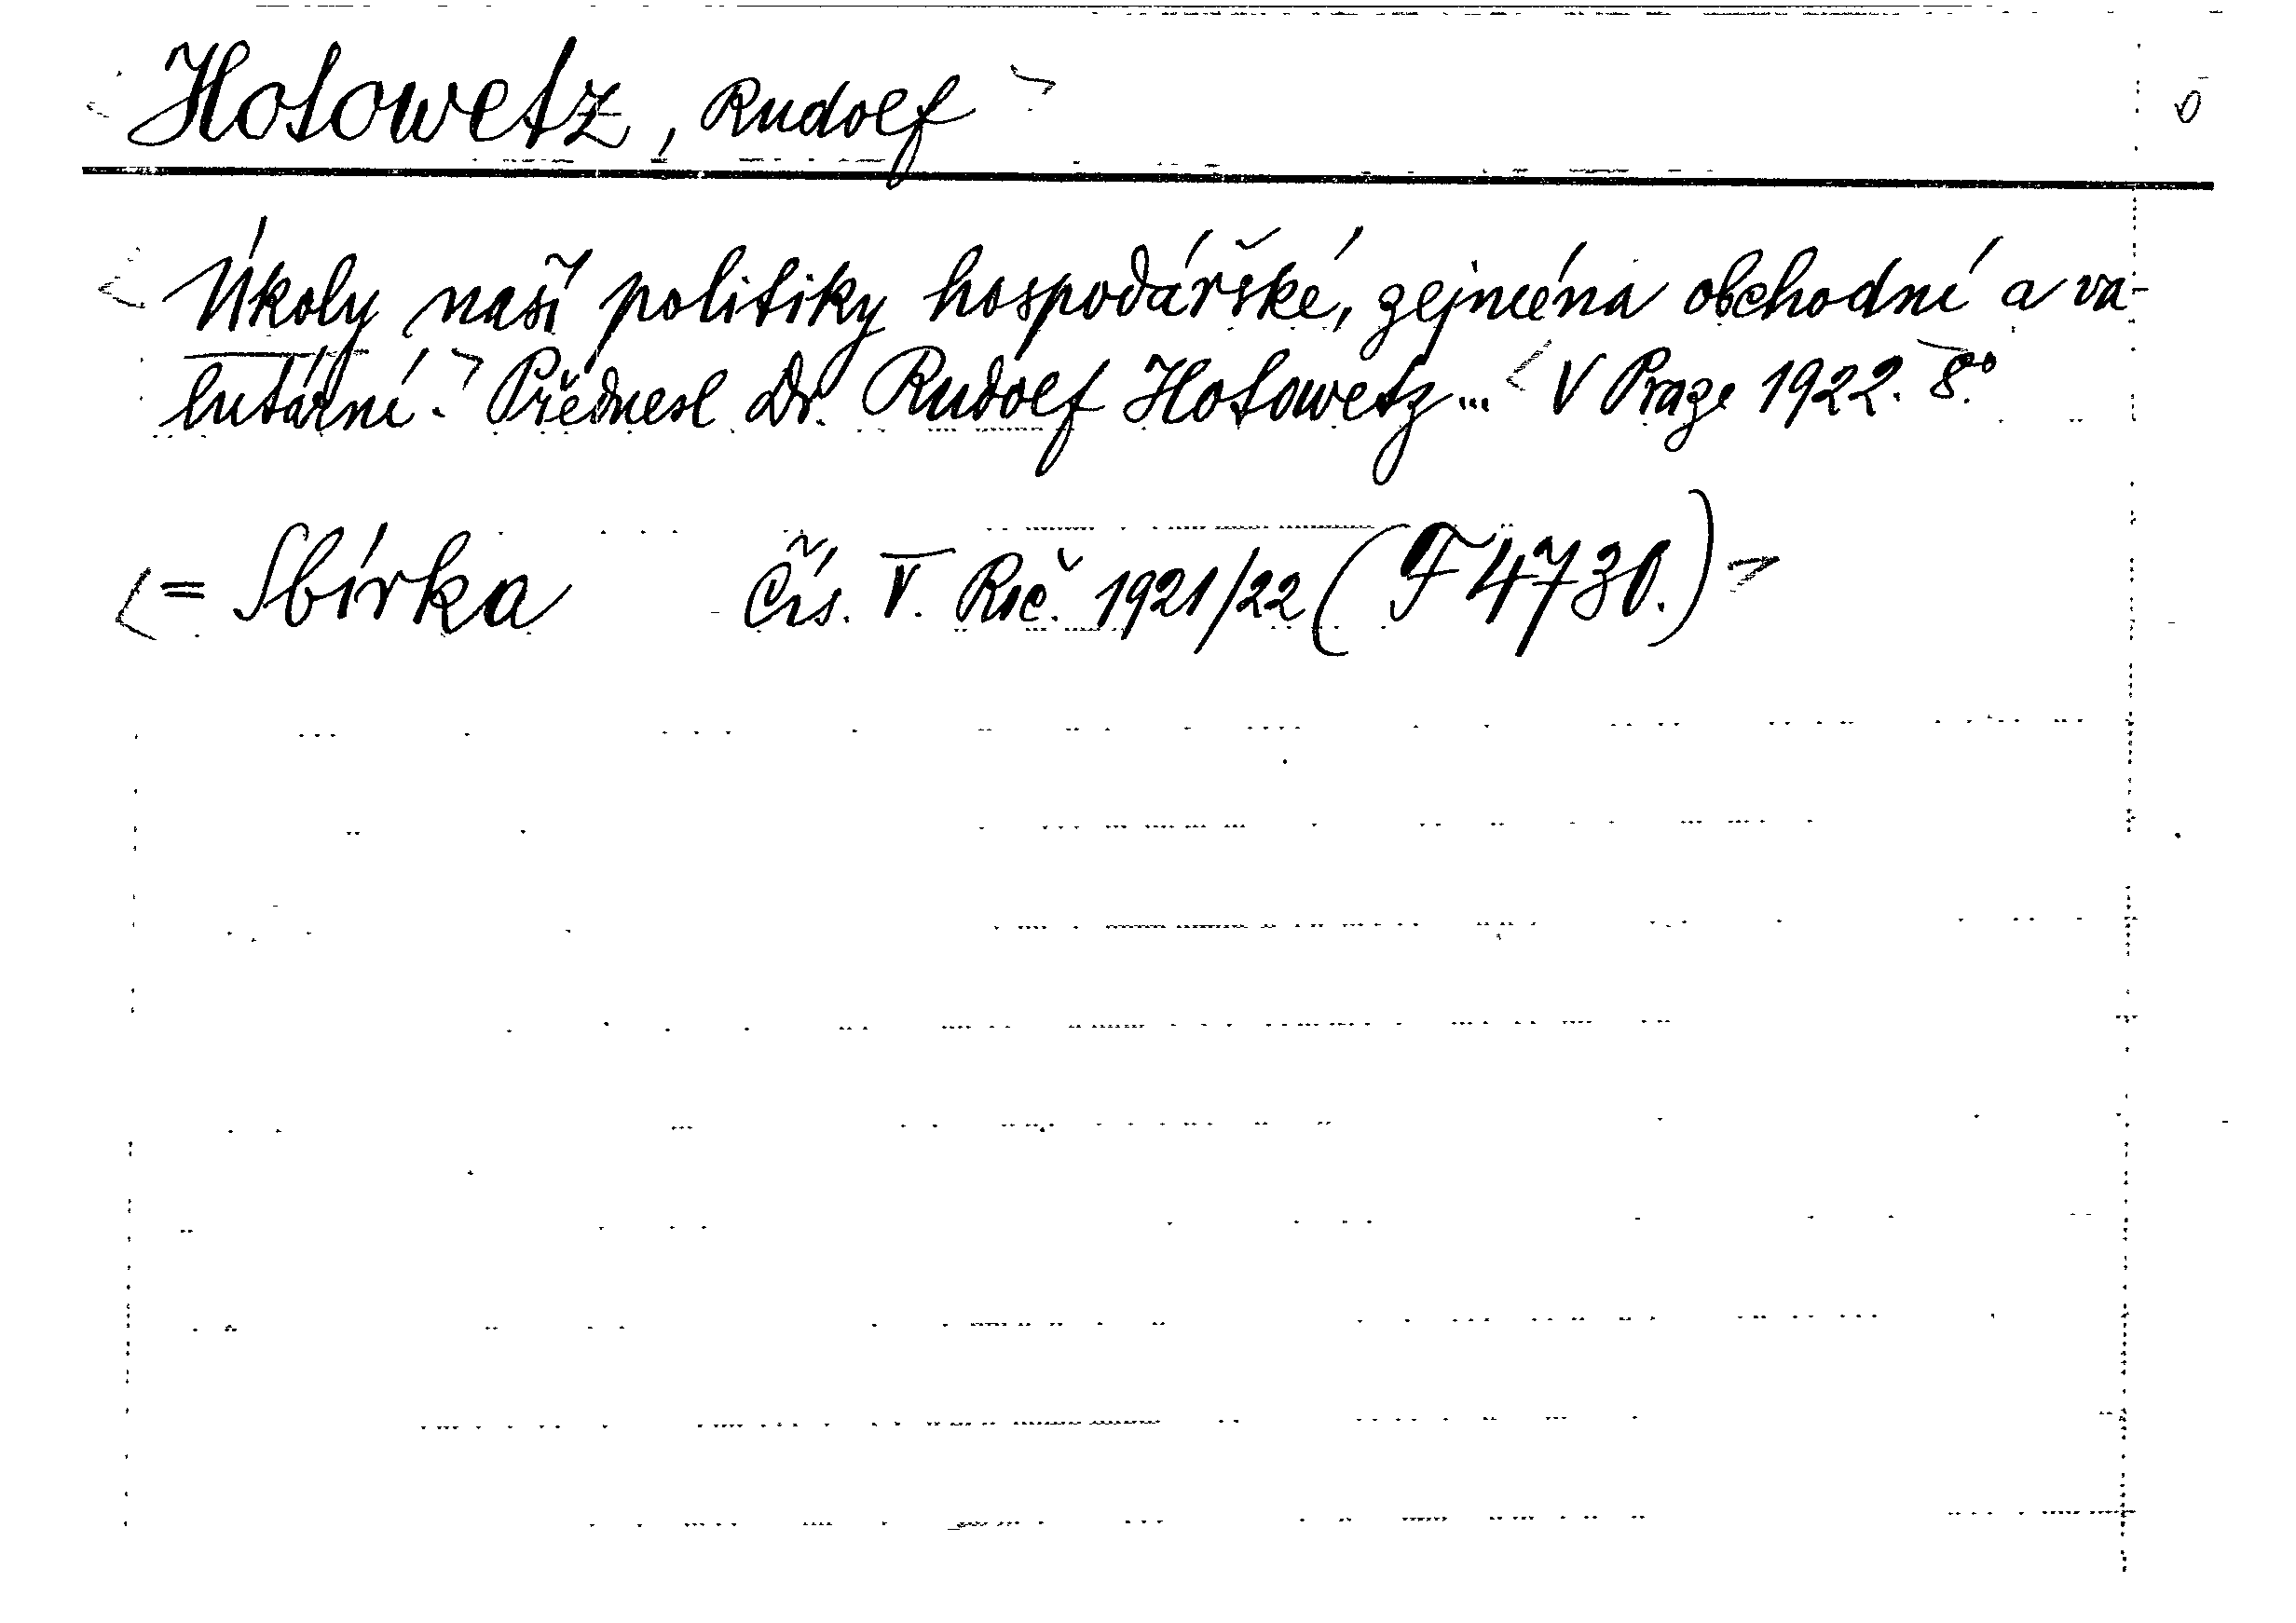 Hotowetz, Rudolf
Úkoly naší politiky hospodářské, zejména obchodní a va-
lutární. Přednesl Dr. Rudolf Hotowetz... V Praze 1922. 8°.
= Sbírka Čís. V. Roč. 1921/22 (F 4730.)